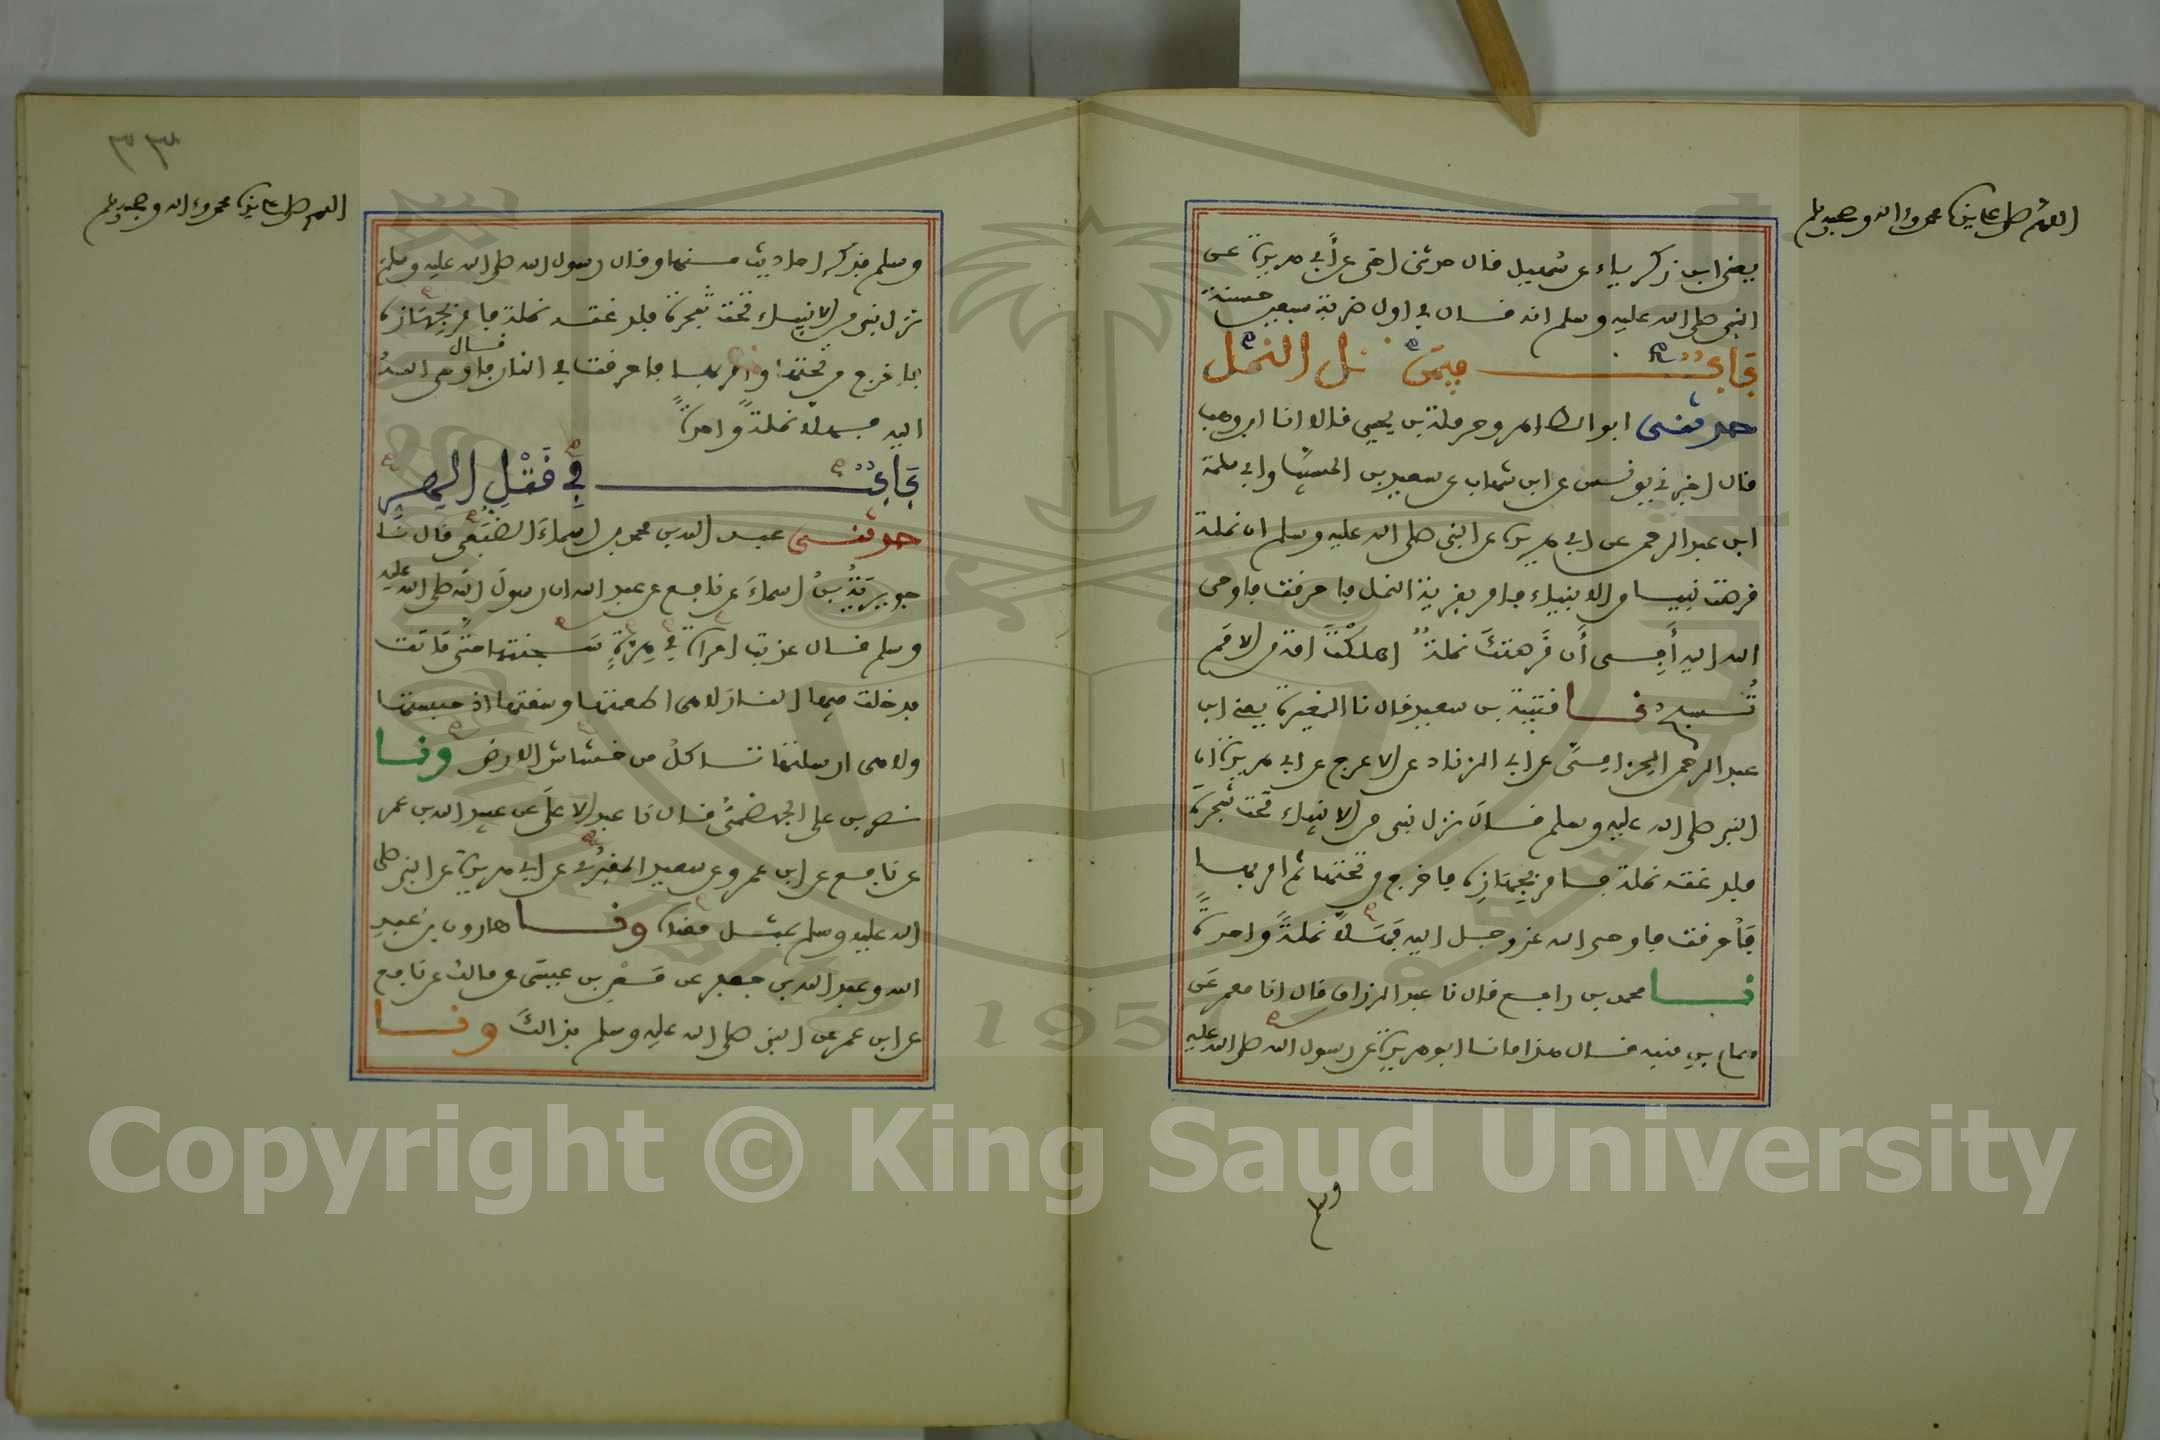 اللهم صل على سيدنا محمد وءاله وصحبه وسلم
يعني ابن زكرياء عن سهيل قال حدثتني اختي عن أبي هريرة عن
النبي صلى الله عليه وسلم انه قال في اول ضربة سبعين حسنة
بَابٌ فِيمَن نمل النمل
حدثني ابو الطاهر وحرملة بن يحيى قالا انا ابن وهب
قال اخبرني يونس عن ابن شهاب عن سعيد بن المسيب وابي سلمة
ابن عبد الرحمن عن ابي هريرة عن النبي صلى الله عليه وسلم ان نملة
قرصت نبيا من الانبياء فامر بقرية النمل فاحرقت فاوحى
الله اليه أفي أن قَرصتك نملةٌ اهلكْتَ امة من الامم
تُسبح نا قتيبة بن سعيد قال نا المغيرة يعني ابن
عبد الرحمن الحزامي عن ابي الزناد عن الاعرج عن ابي هريرة ان
النبي صلى الله عليه وسلم قال نزل نبي من الانبياء تحت شجرة
فلدغته نملة فامر بِجِهَازِه فاخرج من تحتها ثم امر بها
فأحرقت فاوحى الله عز وجل اليه فَهَلّا نملةً واحدةً
نا محمد بن رافع قال نا عبد الرزاق قال انا معمر عن
همام بن منبه قال هذا ما نا ابو هريرة عن رسول الله صلى الله عليه
اللهم صل على سيدنا محمد وءاله وصحبه وسلم
٣٣
وسلم فذكر احاديث منها وقال رسول الله صلى الله عليه وسلم
نزل نبي من الانبياء تحت شجرة فلدغته نملة فامر بجهازه
فاخرج من تحتها وامر بها فاحرقت في النار قال فاوحى الله
اليه فهلّا نملةً واحدةً
بَابٌ فِي قَتْلِ الهِرِّ
حدثني عبد الله بن محمد بن اسماءَ الضُبَعي قال نا
جويريَةُ بنُ اسماءَ عن نافع عن عبد الله ان رسولَ الله صلى الله عليه
وسلم قال عذبت امراة في هِرةٍ سجنتها حتى ماتت
فدخلت فيها النار لا هي اطعمتها وسقتها اذ حبستها
ولا هي ارسلتها تاكلُ من خشاش الارض ونا
نصر بن علي الجهضمي قال نا عبد الاعلى عن عبيد الله بن عمر
عن نافع عن ابن عمر وعن سعيد المقبري عن ابي هريرة عن النبي صلى
الله عليه وسلم بمثل معناه ونا هارون بن عبد
الله وعبد الله بن جعفر عن مَعْنِ بن عيسى عن مالك عن نافع
عن ابن عمر عن النبي صلى الله عليه وسلم بذلك ونا
Copyright © King Saud University
1957